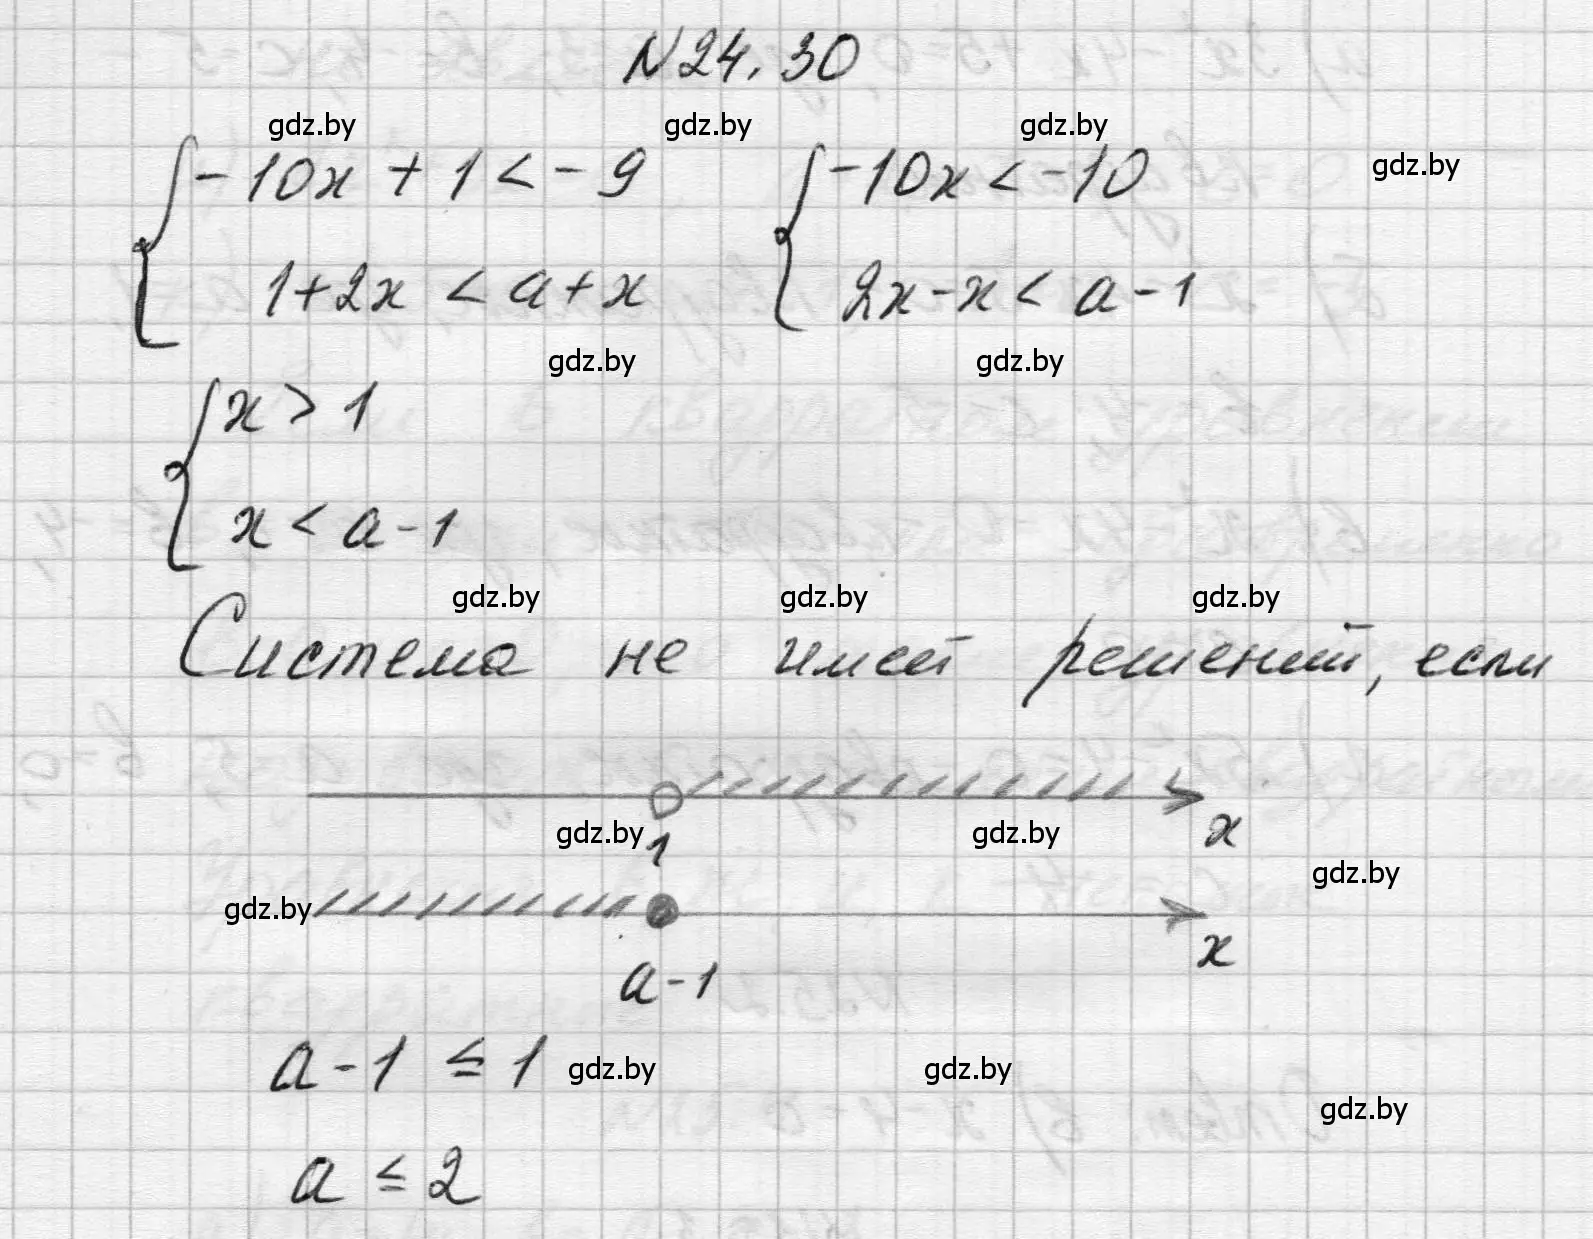 N24.30
gdz.by gdz.by gdz.by
{ -10x + 1 < -9 { -10x < -10 gdz.by
1+2x < a+x 2x-x < a-1
gdz.by gdz.by
{ x > 1
x < a-1
gdz.by gdz.by gdz.by
Система не имеет решений, если
gdz.by 1 gdz.by x
gdz.by
gdz.by
a-1 x
a-1 ≤ 1 gdz.by gdz.by
gdz.by
a ≤ 2